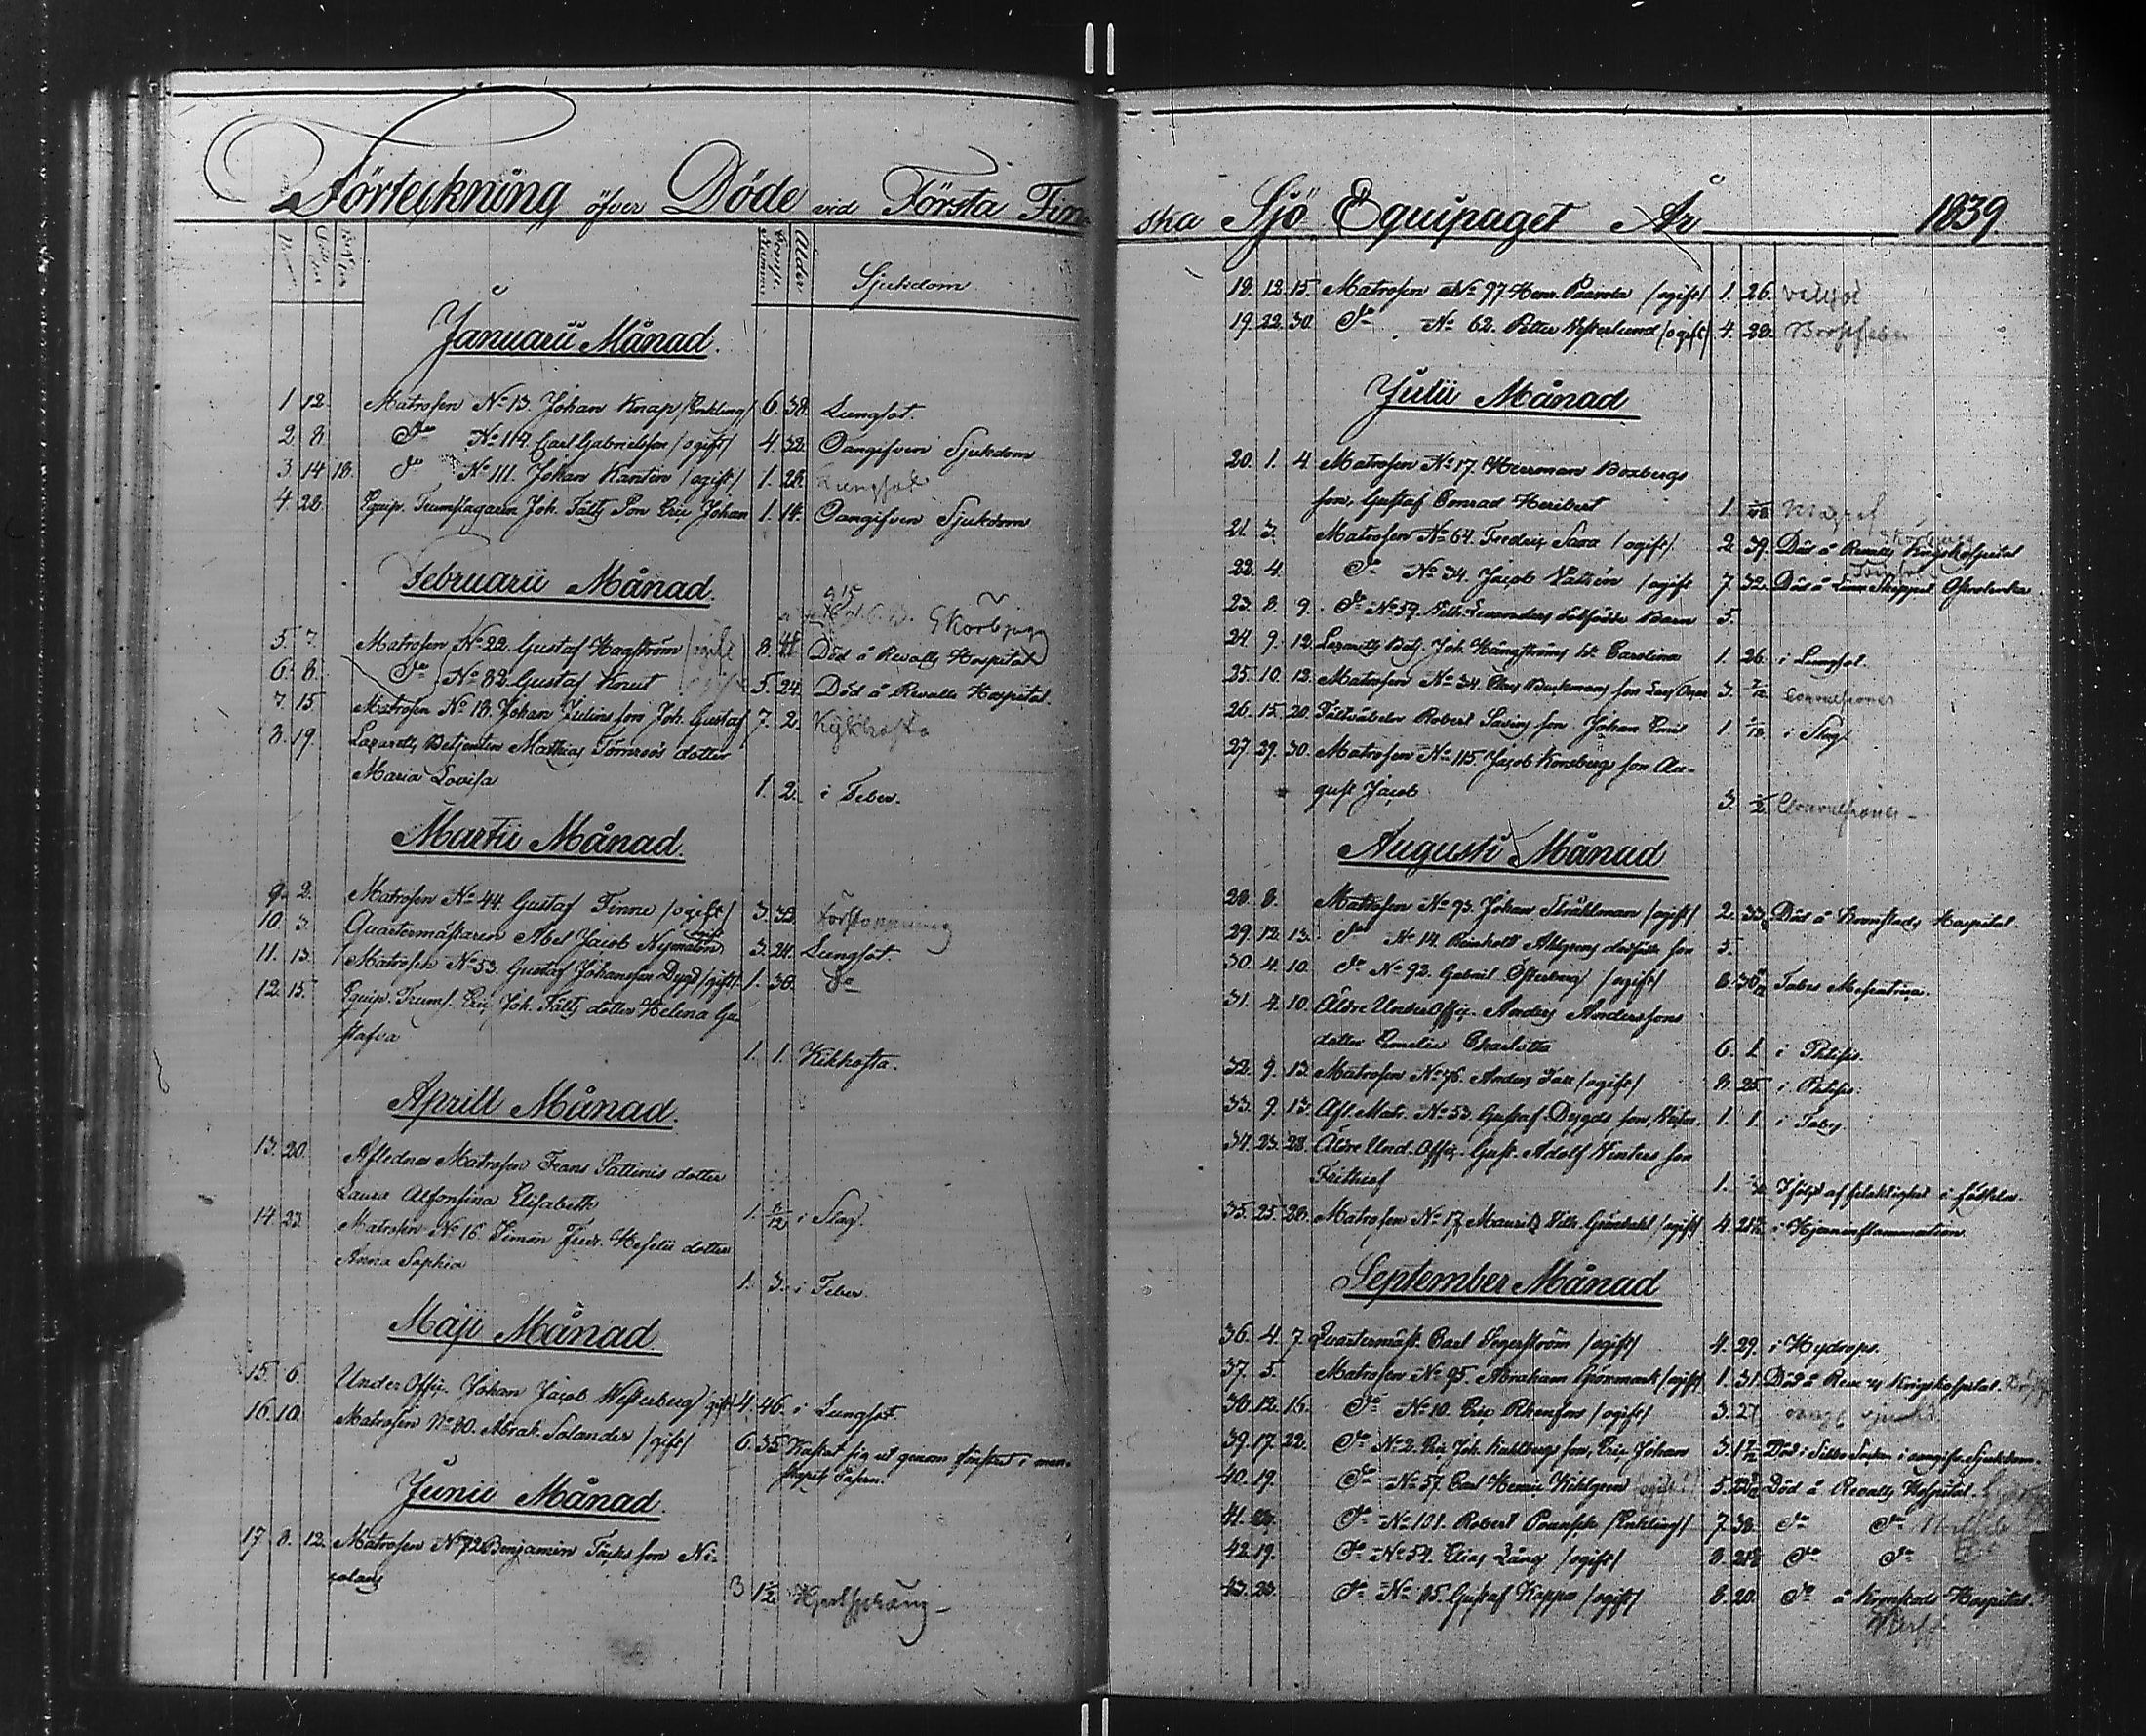 Förteckning öfver Döde vid Första Fin-
Sjukdom
Januarii Månad.
1 12. Matrosen No 13. Johan Knap /Enkling/ 6. 38. Lungsot.
2 8 Do No 114. Carl Gabrielsson /ogift/ 4. 32. Oangifven Sjukdom
3 14 18. Do No 111. Johan Kantin /ogift/ 1. 28. Lungsot
4 28. Equip. Trumslagaren Joh. Fältz Son Eric Johan 1. 14. Oangifven Sjukdom
Februarii Månad.
Skörbjugg
5. 7. Matrosen No 22. Gustaf Hagström 8. Död å Revalls Hospital
6. 8. Do No 82. Gustaf Knut 5. 24. Död å Revalls Hospital.
7. 15. Matrosen No 18. Johan Julins son Joh. Gustaf 7. 2. Kikhosta
8. 19. Lazaretts Betjenten Mathias Törnroos dotter
Maria Lovisa 1. 2. i Feber.
Martii Månad.
9. 2. Matrosen No 44. Gustaf Finne /ogift/ 3. 33. Förstoppning
10. 3. Quartermästaren Abel Jacob Nyman 3. 24. Lungsot.
11. 13. Matrosen No 53. Gustaf Johansson Dygd /gift/ 1. 30. Do
12. 15. Equip. Trums. Eric Joh. Fältz dotter Helena Gu-
stafva 1. 1. Kikhosta.
Aprill Månad.
13. 20. Aflednes Matrosen Frans Sallinis dotter
Laura Alfonsina Elisabeth 1. 8/12 i Slag.
14. 23. Matrosen No 16. Simon Fredr. Heselii dotter
Anna Sophia 1. 3. i Feber.
Maji Månad.
15. 6. Under Offic. Johan Jacob Westerberg /gift/ 4. 46. i Lungsot.
16. 10. Matrosen No 80. Abrah. Solander /gift/ 6. 35. Kastat sig ut genom fönstret i man-
skaps Casern.
Junii Månad.
17 8. 12. Matrosen No 72 Benjamin Täcks son Ni-
colaus 3 1/2 Hjertsprång
ska Sjö Equipaget År 1839
18. 12. 15. Matrosen No 97. Henr. Paavola /ogift/ 1. 26.
19. 22. 30. Do No 62. Petter Westerlund /ogift/ 4. 28. Bröstfeber
Julii Månad
20. 1. 4. Matrosen No 17. Herrman Boxbergs
son, Gustaf Conrad Heribert 1.
21. 3. Matrosen No 64. Fredric Saxa /ogift/. 2. 39. Död å Revalls Krigshospital
22. 4. Do No 34. Jacob /ogift 7. 32. Död å Skeppet
23. 8. 9. Do No 59. dödfödda Barn 5.
24. 9. 12. Lazaretts Betj. Joh. Hängströms h. Carolina 1. 26. i Lungsot.
25. 10. 13. Matrosen No 34. Clas Backmans son 3. Convulsioner
26. 15. 20. Fältväbeln Robert Savins son Johan Emil 1. i Slag
27. 29. 30. Matrosen No 115. Jacob Kornbergs son Au-
gust Jacob 3. Convulsioner
Augusti Månad
28. 8. Matrosen No 93. Johan Stråhlman /ogift/ 2. 33. Död å Kronstads Hospital.
29. 12. 13. Do No 14. Reinholt Ahlgrens dödfödde son 5.
30. 4. 10. Do No 92. Gabriel Österberg /ogift/ 6. Tabes Mesenterica.
31. 4. 10. Äldre Under Offic. Anders Anderssons
dotter Emelie Charlotta 6. 1 i Phtisis.
32. 9. 13. Matrosen No 76. Anders Falk /ogift/ 8. 25. i Phtisis.
33. 9. 13. Afl. Matr. No 53. Gustaf Dygds son, 1. 1. i
34. 23. 28. Äldre Und. Offic. Gust. Adolf Winters son
Frithiof 1. Ifölgd af felaktighet i födseln.
35. 25. 28. Matrosen No 17 Mauritz Wilh. Gröndahl /ogift/ 4. i Hjerninflammation
September Månad
36. 4. 7. Quartermäst. Carl Segerström /ogift/ 4. 29. i Hydrops.
37. 5. Matrosen No 95. Abraham Grönmark /ogift/ 1. 31. Död å Revalls Krigshospital.
38. 12. 16. Do No 10. Eric Rhenfors /ogift/ 3. 27
39. 17. 22. Do No 2. Eric Joh. Kahlbergs son, Eric Johan 3. Död i Sibbo Socken i oangifv. Sjukdom.
40. 19. Do No 57. Carl Henric Kihlgren 5. Död å Revalls Hospital.
41. Do No 101. Robert /Enkling/ 7. 38. Do Do
42. 19. Do No 54. Elias Lång /ogift/ 8. Do Do
43. 23. Do No 85. Gustaf Kappas /ogift/ 8. 20. Do å Kronstads Hospital.